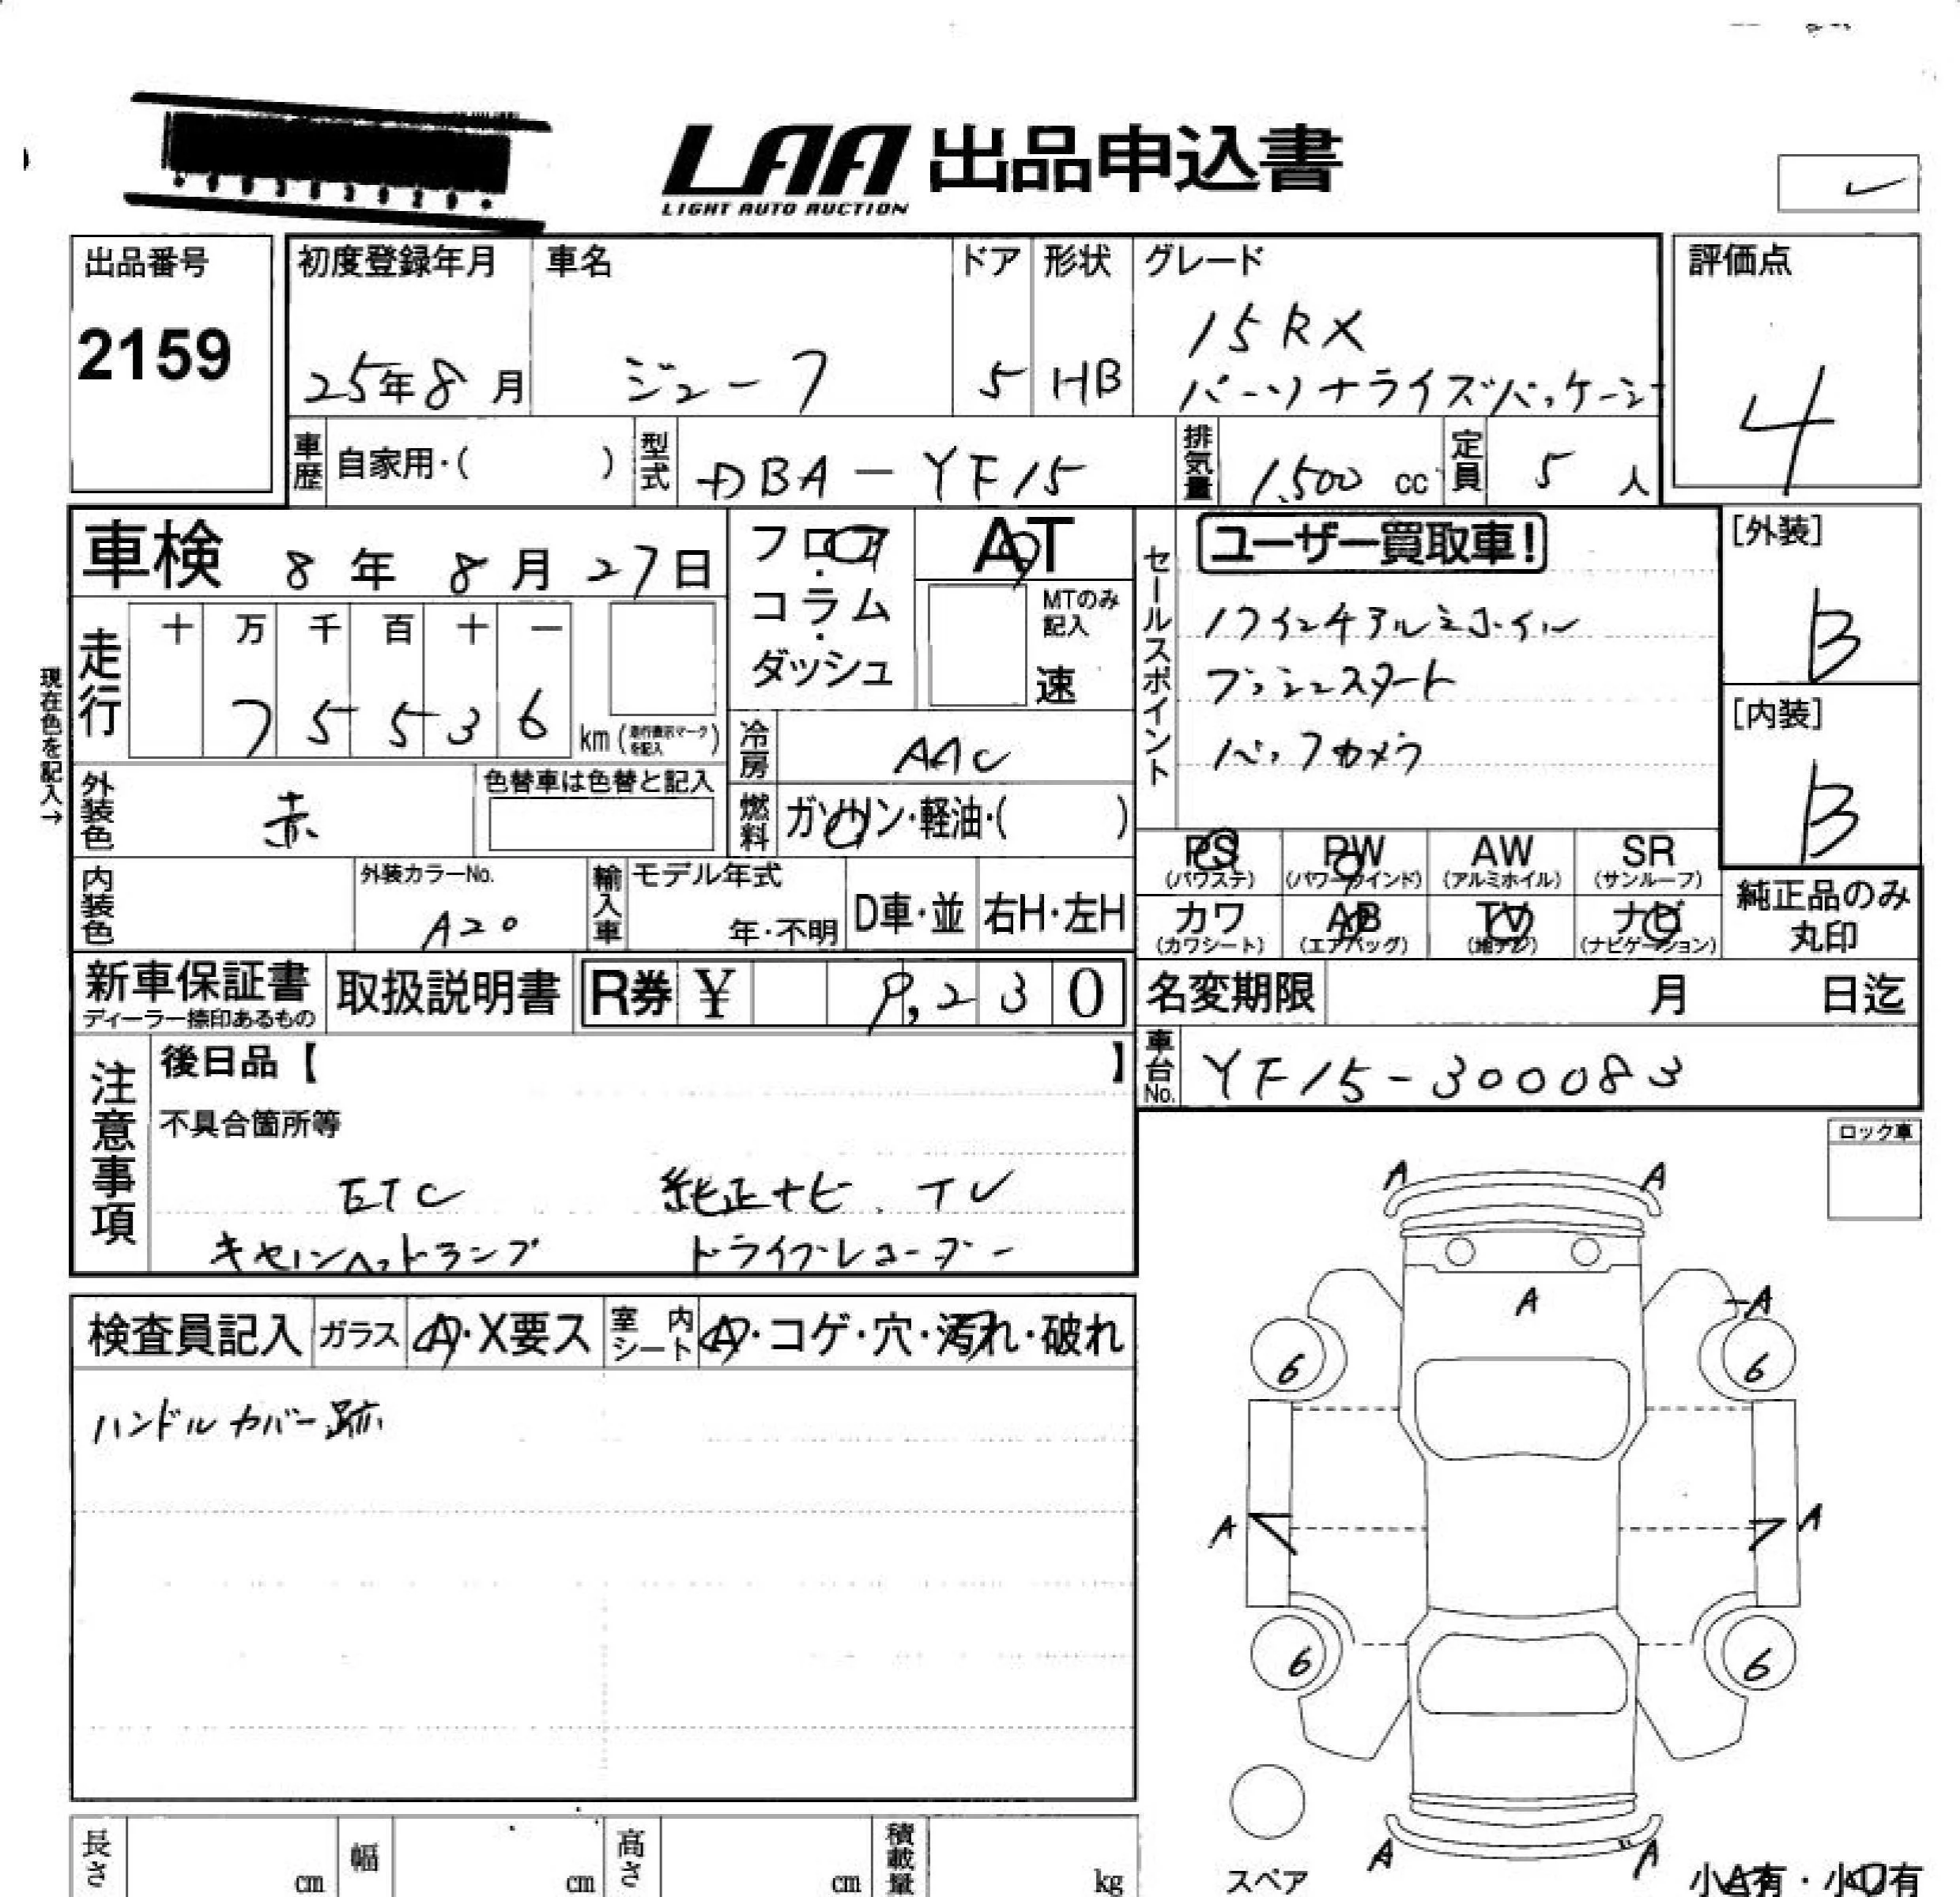 LAA 出品申込書
LIGHT AUTO AUCTION
出品番号
2159
初度登録年月
25年8月
車名
ジューク
ドア
5
形状
HB
グレード
15RX
パーソナライズパッケージ
評価点
4
車歴 自家用・( )
型式 DBA-YF15
排気量 1,500 cc
定員 5人
車検 8年8月27日
フロア・コラム・ダッシュ
AT
MTのみ記入
速
セールスポイント
ユーザー買取車!
17インチアルミホイル
プッシュスタート
バックカメラ
[外装]
B
[内装]
B
現在色を記入→
走行
十 万 千 百 十 一
7 5 5 3 6 km (走行表示マークを記入)
冷房 AAC
外装色 赤
色替車は色替と記入
燃料 ガソリン・軽油・( )
PS (パワステ)
PW (パワーウインド)
AW (アルミホイル)
SR (サンルーフ)
カワ (カワシート)
AB (エアバッグ)
TV (地デジ)
ナビ (ナビゲーション)
純正品のみ丸印
内装色
外装カラーNo.
A20
輸入車
モデル年式
年・不明
D車・並
右H・左H
新車保証書
ディーラー捺印あるもの
取扱説明書
R券 ¥ 9,230
名変期限 月 日迄
車台No. YF15-300083
注意事項
後日品【 】
不具合箇所等
ETC 純正ナビ. TV
キセノンヘッドランプ ドライブレコーダー
ロック車
検査員記入
ガラス A・X要ス
室内シート A・コゲ・穴・汚れ・破れ
ハンドルカバー跡
A A
A
A
6 6
A A
6 6
A A
スペア
小A有・小U有
長さ cm
幅 cm
高さ cm
積載量 kg